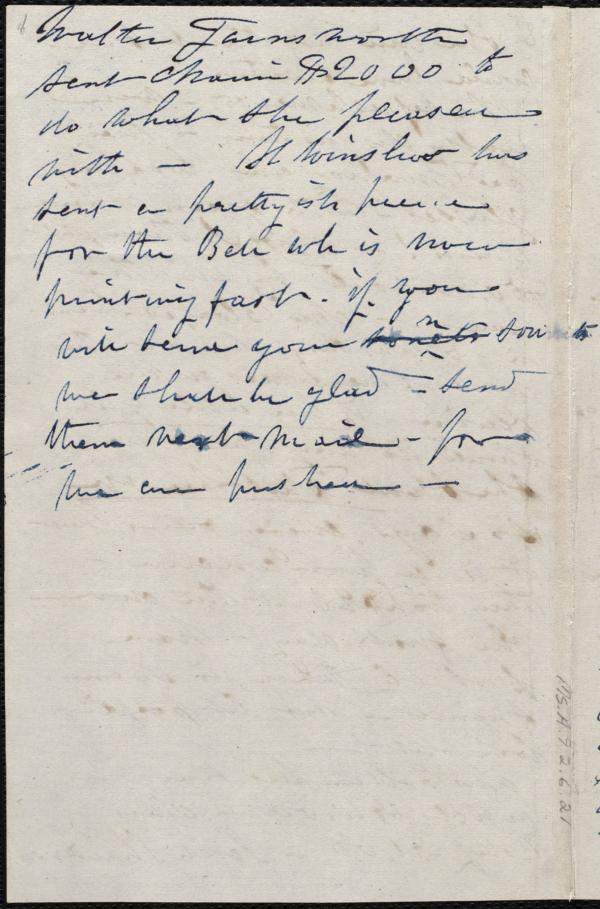 Walter Farnsworth
sent Maria $2000 to
do what she pleases
with — H Winslow has
sent a prettyish piece
for the Bell wh is now
printing fast. if you
will send your sonnets to
we shall be glad — send
them next mail — for
we are pushed —
Ms.A.9.2.6.21